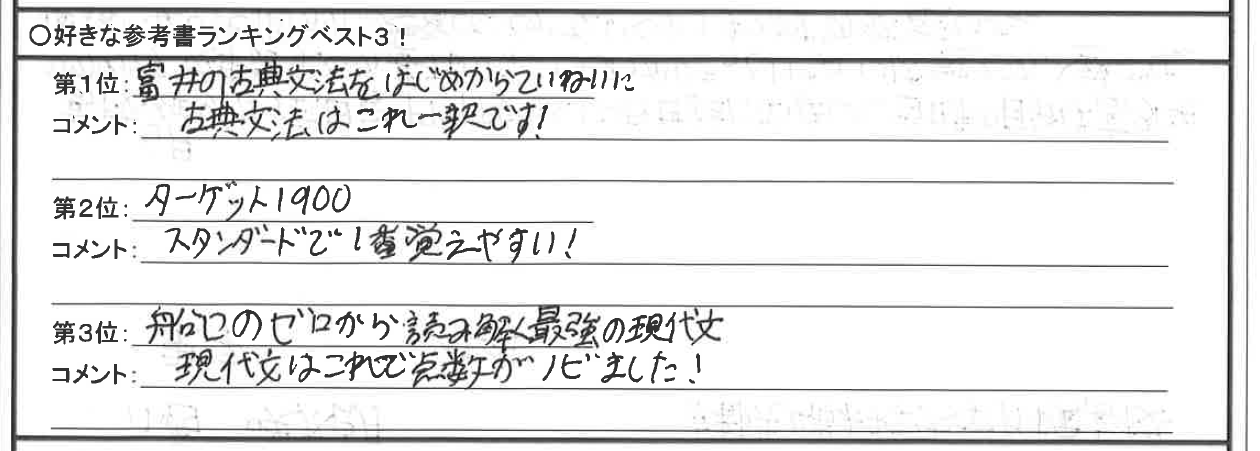 〇好きな参考書ランキングベスト3!
第1位: 富井の古典文法をはじめからていねいに
コメント: 古典文法はこれ一択です!
第2位: ターゲット1900
コメント: スタンダードで1番覚えやすい!
第3位: 船口のゼロから読み解く最強の現代文
コメント: 現代文はこれで点数がノビました!